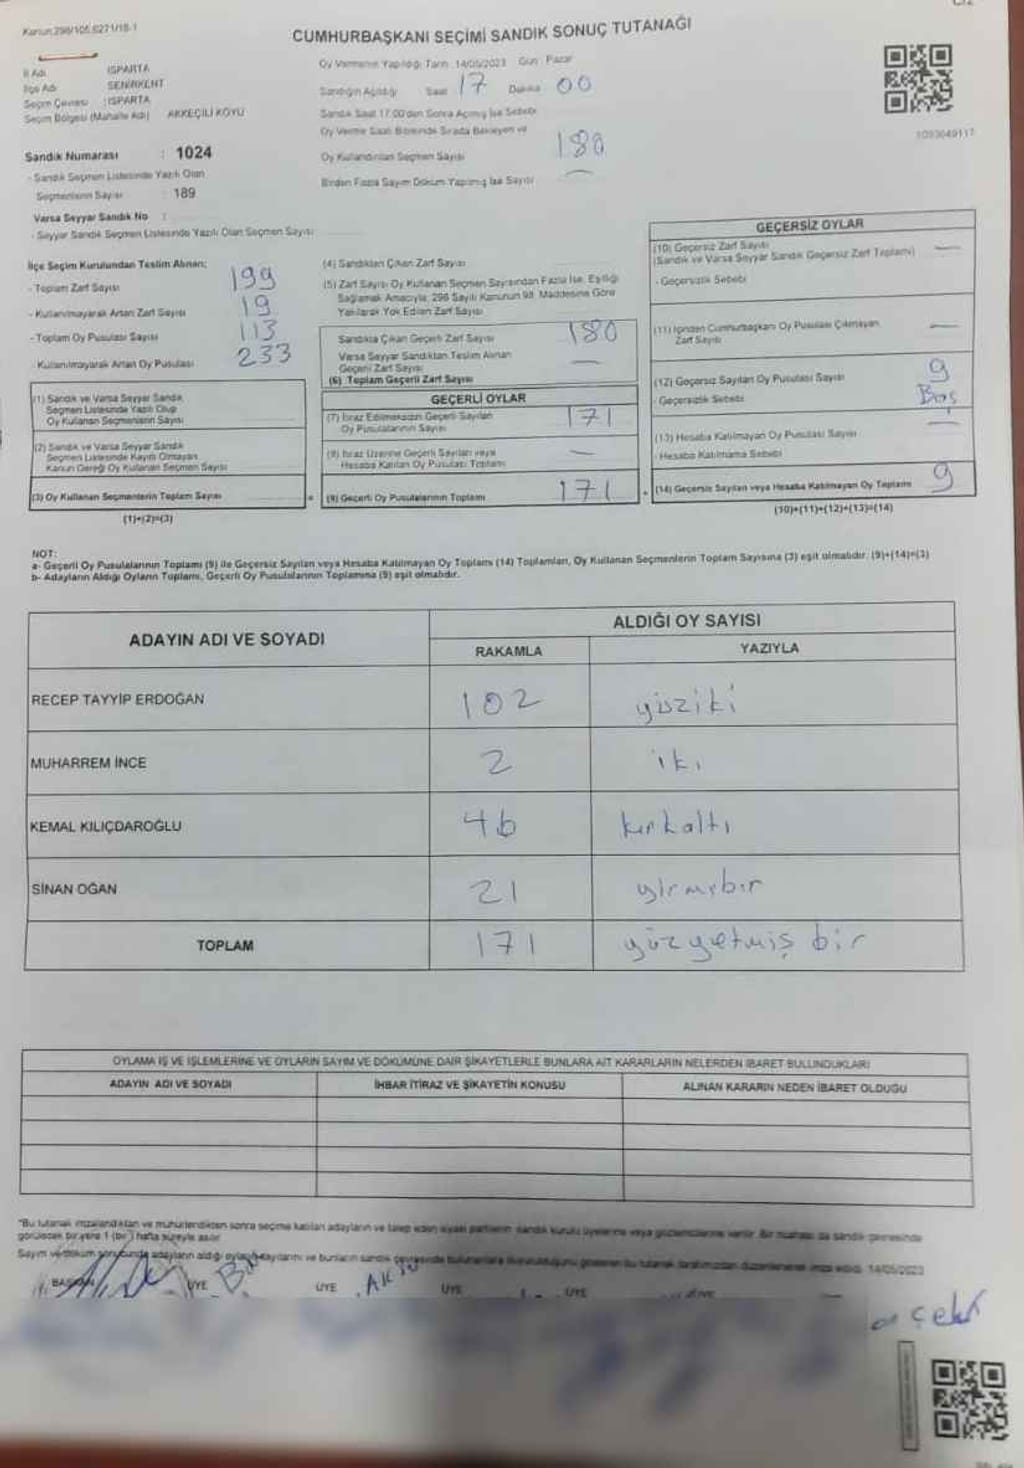 Kanun:298/105,6271/18-1
CUMHURBAŞKANI SEÇİMİ SANDIK SONUÇ TUTANAĞI
İl Adı ISPARTA
İlçe Adı SENİRKENT
Seçim Çevresi : ISPARTA
Seçim Bölgesi (Mahalle Adı) AKKEÇİLİ KÖYÜ
Sandık Numarası : 1024
- Sandık Seçmen Listesinde Yazılı Olan
Seçmenlerin Sayısı : 189
Varsa Seyyar Sandık No :
- Seyyar Sandık Seçmen Listesinde Yazılı Olan Seçmen Sayısı
Oy Vermenin Yapıldığı Tarih : 14/05/2023 Gün : Pazar
Sandığın Açıldığı Saat 17 Dakika 00
Sandık Saat 17.00'den Sonra Açılmış İse Sebebi
Oy Verme Saati Bitiminde Sırada Bekleyen ve
Oy Kullandırılan Seçmen Sayısı 180
Birden Fazla Sayım Döküm Yapılmış İse Sayısı —
İlçe Seçim Kurulundan Teslim Alınan;
- Toplam Zarf Sayısı 199
- Kullanılmayarak Artan Zarf Sayısı 19
- Toplam Oy Pusulası Sayısı 113
- Kullanılmayarak Artan Oy Pusulası 233
(1) Sandık ve Varsa Seyyar Sandık
Seçmen Listesinde Yazılı Olup
Oy Kullanan Seçmenlerin Sayısı
(2) Sandık ve Varsa Seyyar Sandık
Seçmen Listesinde Kayıtlı Olmayan
Kanun Gereği Oy Kullanan Seçmen Sayısı
(3) Oy Kullanan Seçmenlerin Toplam Sayısı
(1)+(2)=(3)
(4) Sandıktan Çıkan Zarf Sayısı
(5) Zarf Sayısı Oy Kullanan Seçmen Sayısından Fazla İse, Eşitliği
Sağlamak Amacıyla, 298 Sayılı Kanunun 98. Maddesine Göre
Yakılarak Yok Edilen Zarf Sayısı
Sandıkta Çıkan Geçerli Zarf Sayısı 180
Varsa Seyyar Sandıktan Teslim Alınan
Geçerli Zarf Sayısı —
(6) Toplam Geçerli Zarf Sayısı
GEÇERLİ OYLAR
(7) İtiraz Edilmeksizin Geçerli Sayılan
Oy Pusulalarının Sayısı 171
(8) İtiraz Üzerine Geçerli Sayılan veya
Hesaba Katılan Oy Pusulası Toplamı —
(9) Geçerli Oy Pusulalarının Toplamı 171
GEÇERSİZ OYLAR
(10) Geçersiz Zarf Sayısı
(Sandık ve Varsa Seyyar Sandık Geçersiz Zarf Toplamı) —
- Geçersizlik Sebebi
(11) İçinden Cumhurbaşkanı Oy Pusulası Çıkmayan
Zarf Sayısı —
(12) Geçersiz Sayılan Oy Pusulası Sayısı 9
- Geçersizlik Sebebi Boş
(13) Hesaba Katılmayan Oy Pusulası Sayısı —
- Hesaba Katılmama Sebebi
(14) Geçersiz Sayılan veya Hesaba Katılmayan Oy Toplamı 9
(10)+(11)+(12)+(13)=(14)
NOT:
a- Geçerli Oy Pusulalarının Toplamı (9) ile Geçersiz Sayılan veya Hesaba Katılmayan Oy Toplamı (14) Toplamları, Oy Kullanan Seçmenlerin Toplam Sayısına (3) eşit olmalıdır. (9)+(14)=(3)
b- Adayların Aldığı Oyların Toplamı, Geçerli Oy Pusulalarının Toplamına (9) eşit olmalıdır.
ADAYIN ADI VE SOYADI
ALDIĞI OY SAYISI
RAKAMLA YAZIYLA
RECEP TAYYİP ERDOĞAN 102 yüziki
MUHARREM İNCE 2 iki
KEMAL KILIÇDAROĞLU 46 kırkaltı
SİNAN OĞAN 21 yirmibir
TOPLAM 171 yüzyetmiş bir
OYLAMA İŞ VE İŞLEMLERİNE VE OYLARIN SAYIM VE DÖKÜMÜNE DAİR ŞİKAYETLERLE BUNLARA AİT KARARLARIN NELERDEN İBARET BULUNDUKLARI
ADAYIN ADI VE SOYADI İHBAR İTİRAZ VE ŞİKAYETİN KONUSU ALINAN KARARIN NEDEN İBARET OLDUĞU
*Bu tutanak imzalandıktan ve mühürlendikten sonra seçime katılan adayların ve talep eden siyasi partilerin sandık kurulu üyelerine veya gözlemcilerine verilir. Bir nüshası da sandık çevresinde
görülecek bir yere 1 (bir) hafta süreyle asılır.
Sayım ve döküm sonucunda adayların aldığı oyların sayılarını ve bunların sandık çevresinde 14/05/2023
BAŞKAN ÜYE ÜYE ÜYE ÜYE